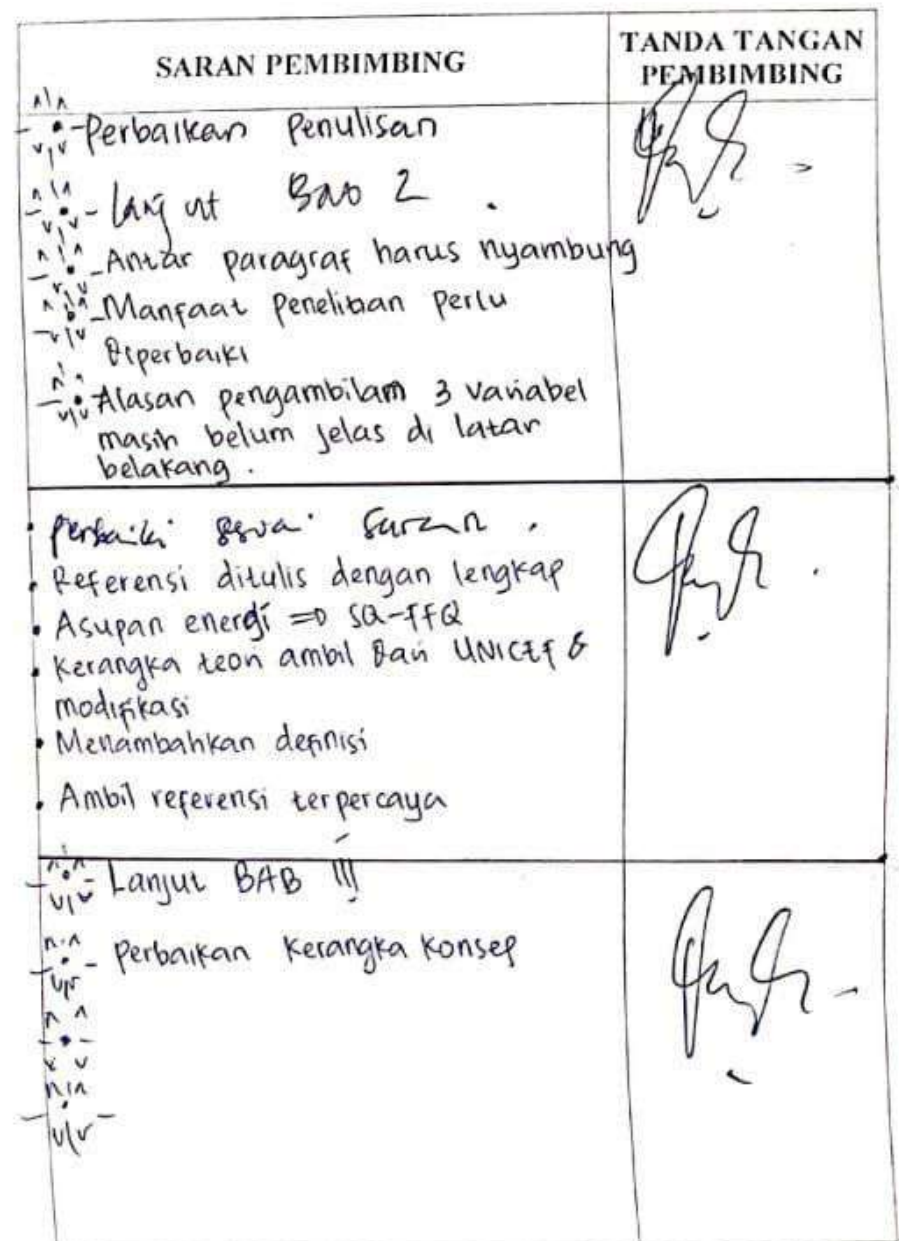 SARAN PEMBIMBING
TANDA TANGAN
PEMBIMBING
- Perbaikan Penulisan
- Lanjut Bab 2 .
- Antar paragraf harus nyambung
- Manfaat Penelitian Perlu
diperbaiki
- Alasan pengambilam 3 variabel
masih belum jelas di latar
belakang .
• Perbaiki sesuai saran .
• Referensi ditulis dengan lengkap
• Asupan energi => SQ-FFQ
• Kerangka teori ambil dari UNICEF &
modifikasi
• Menambahkan definisi
• Ambil referensi terpercaya
- Lanjut BAB III
- Perbaikan Kerangka Konsep